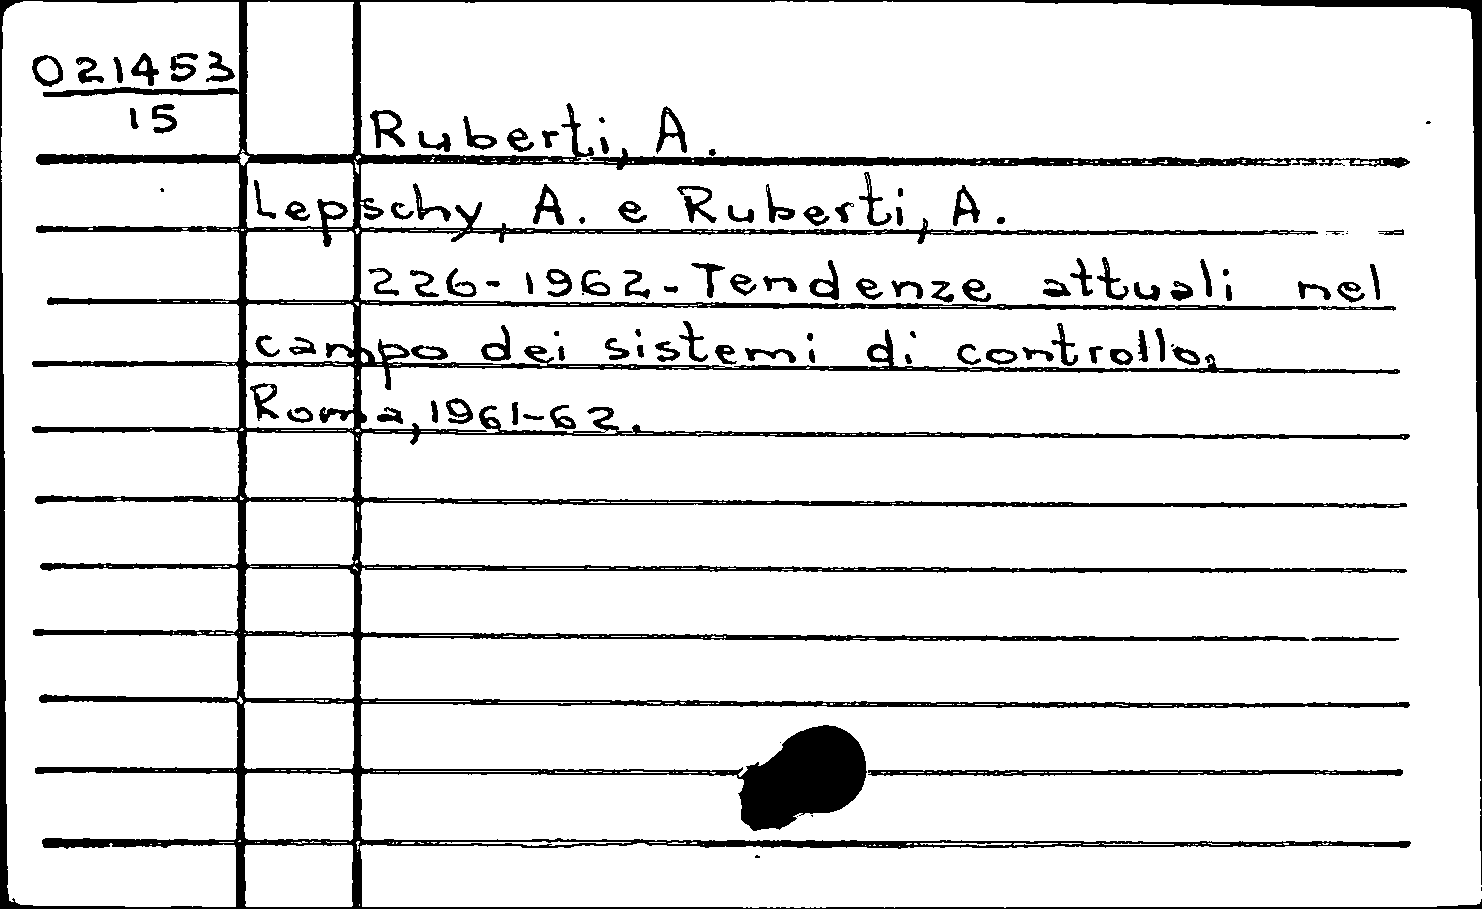 021453
15
Ruberti, A.
Lepschy, A. e Ruberti, A.
226-1962-Tendenze attuali nel
campo dei sistemi di controllo,
Roma, 1961-62.